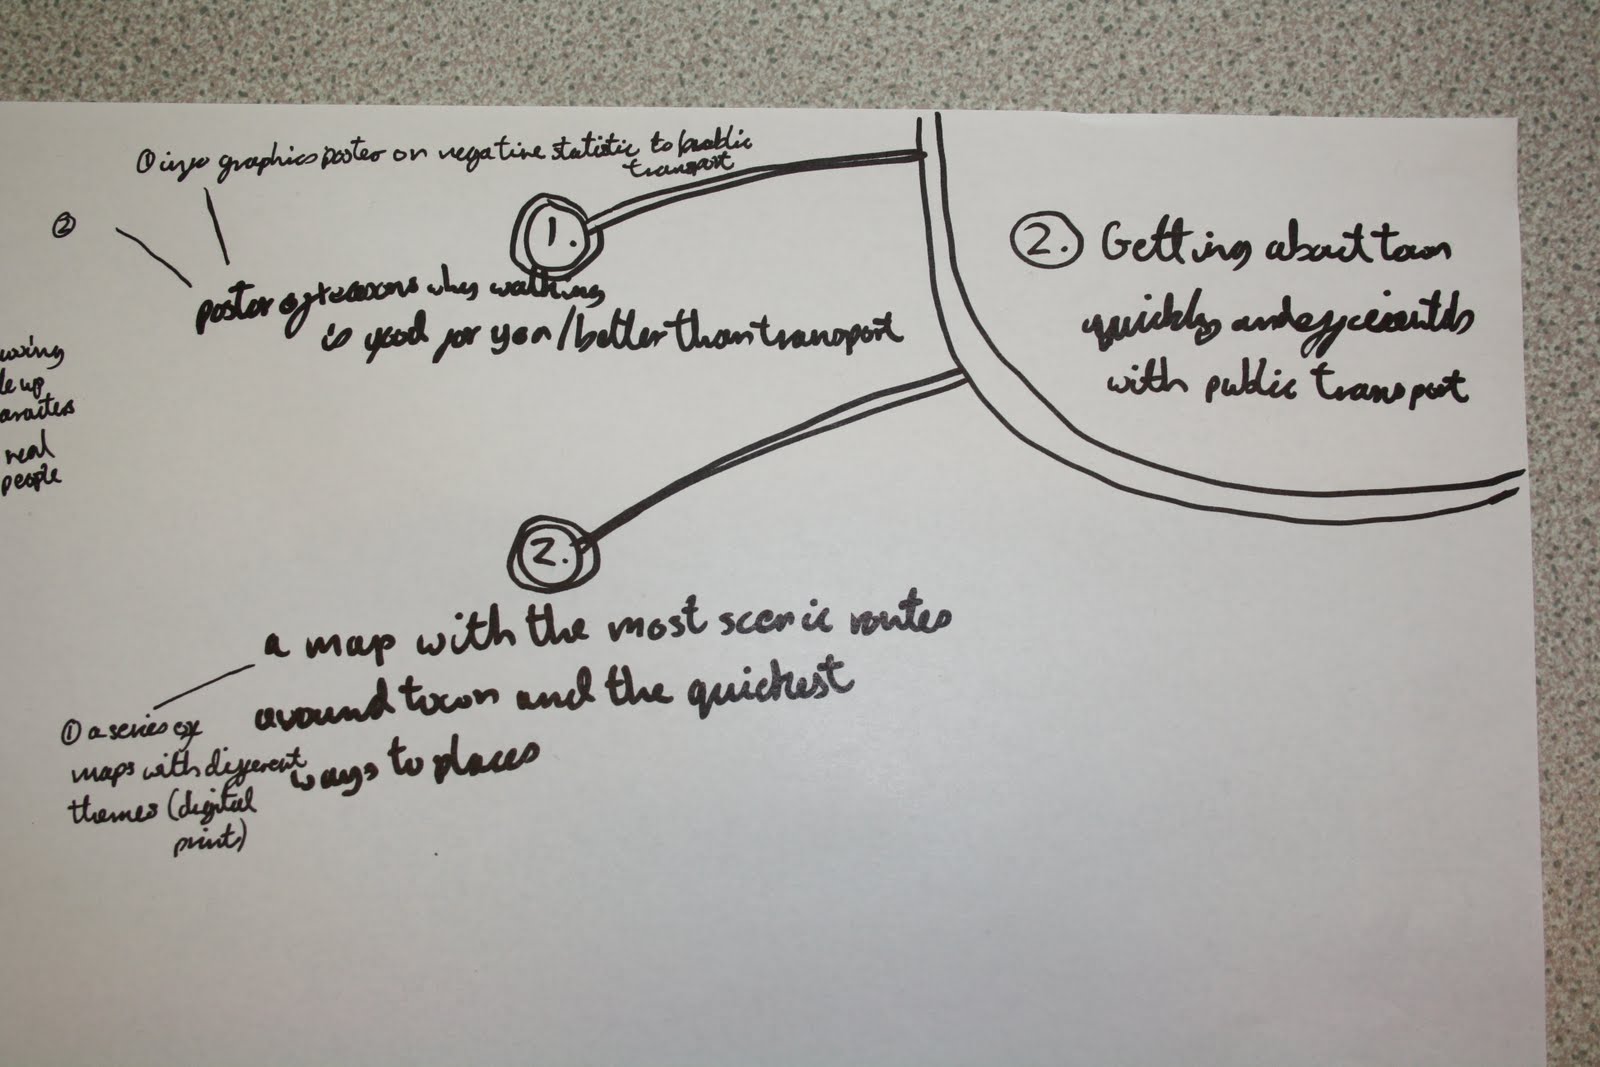 ① info graphics poster on negative statistic to public
transport
②
1.
poster of reasons why walking
is good for you/better than transport
2. Getting about town
quickly and efficiently
with public transport
up
real
people
2.
a map with the most scenic routes
around town and the quickest
ways to places
① a series of
maps with different
themes (digital
print)